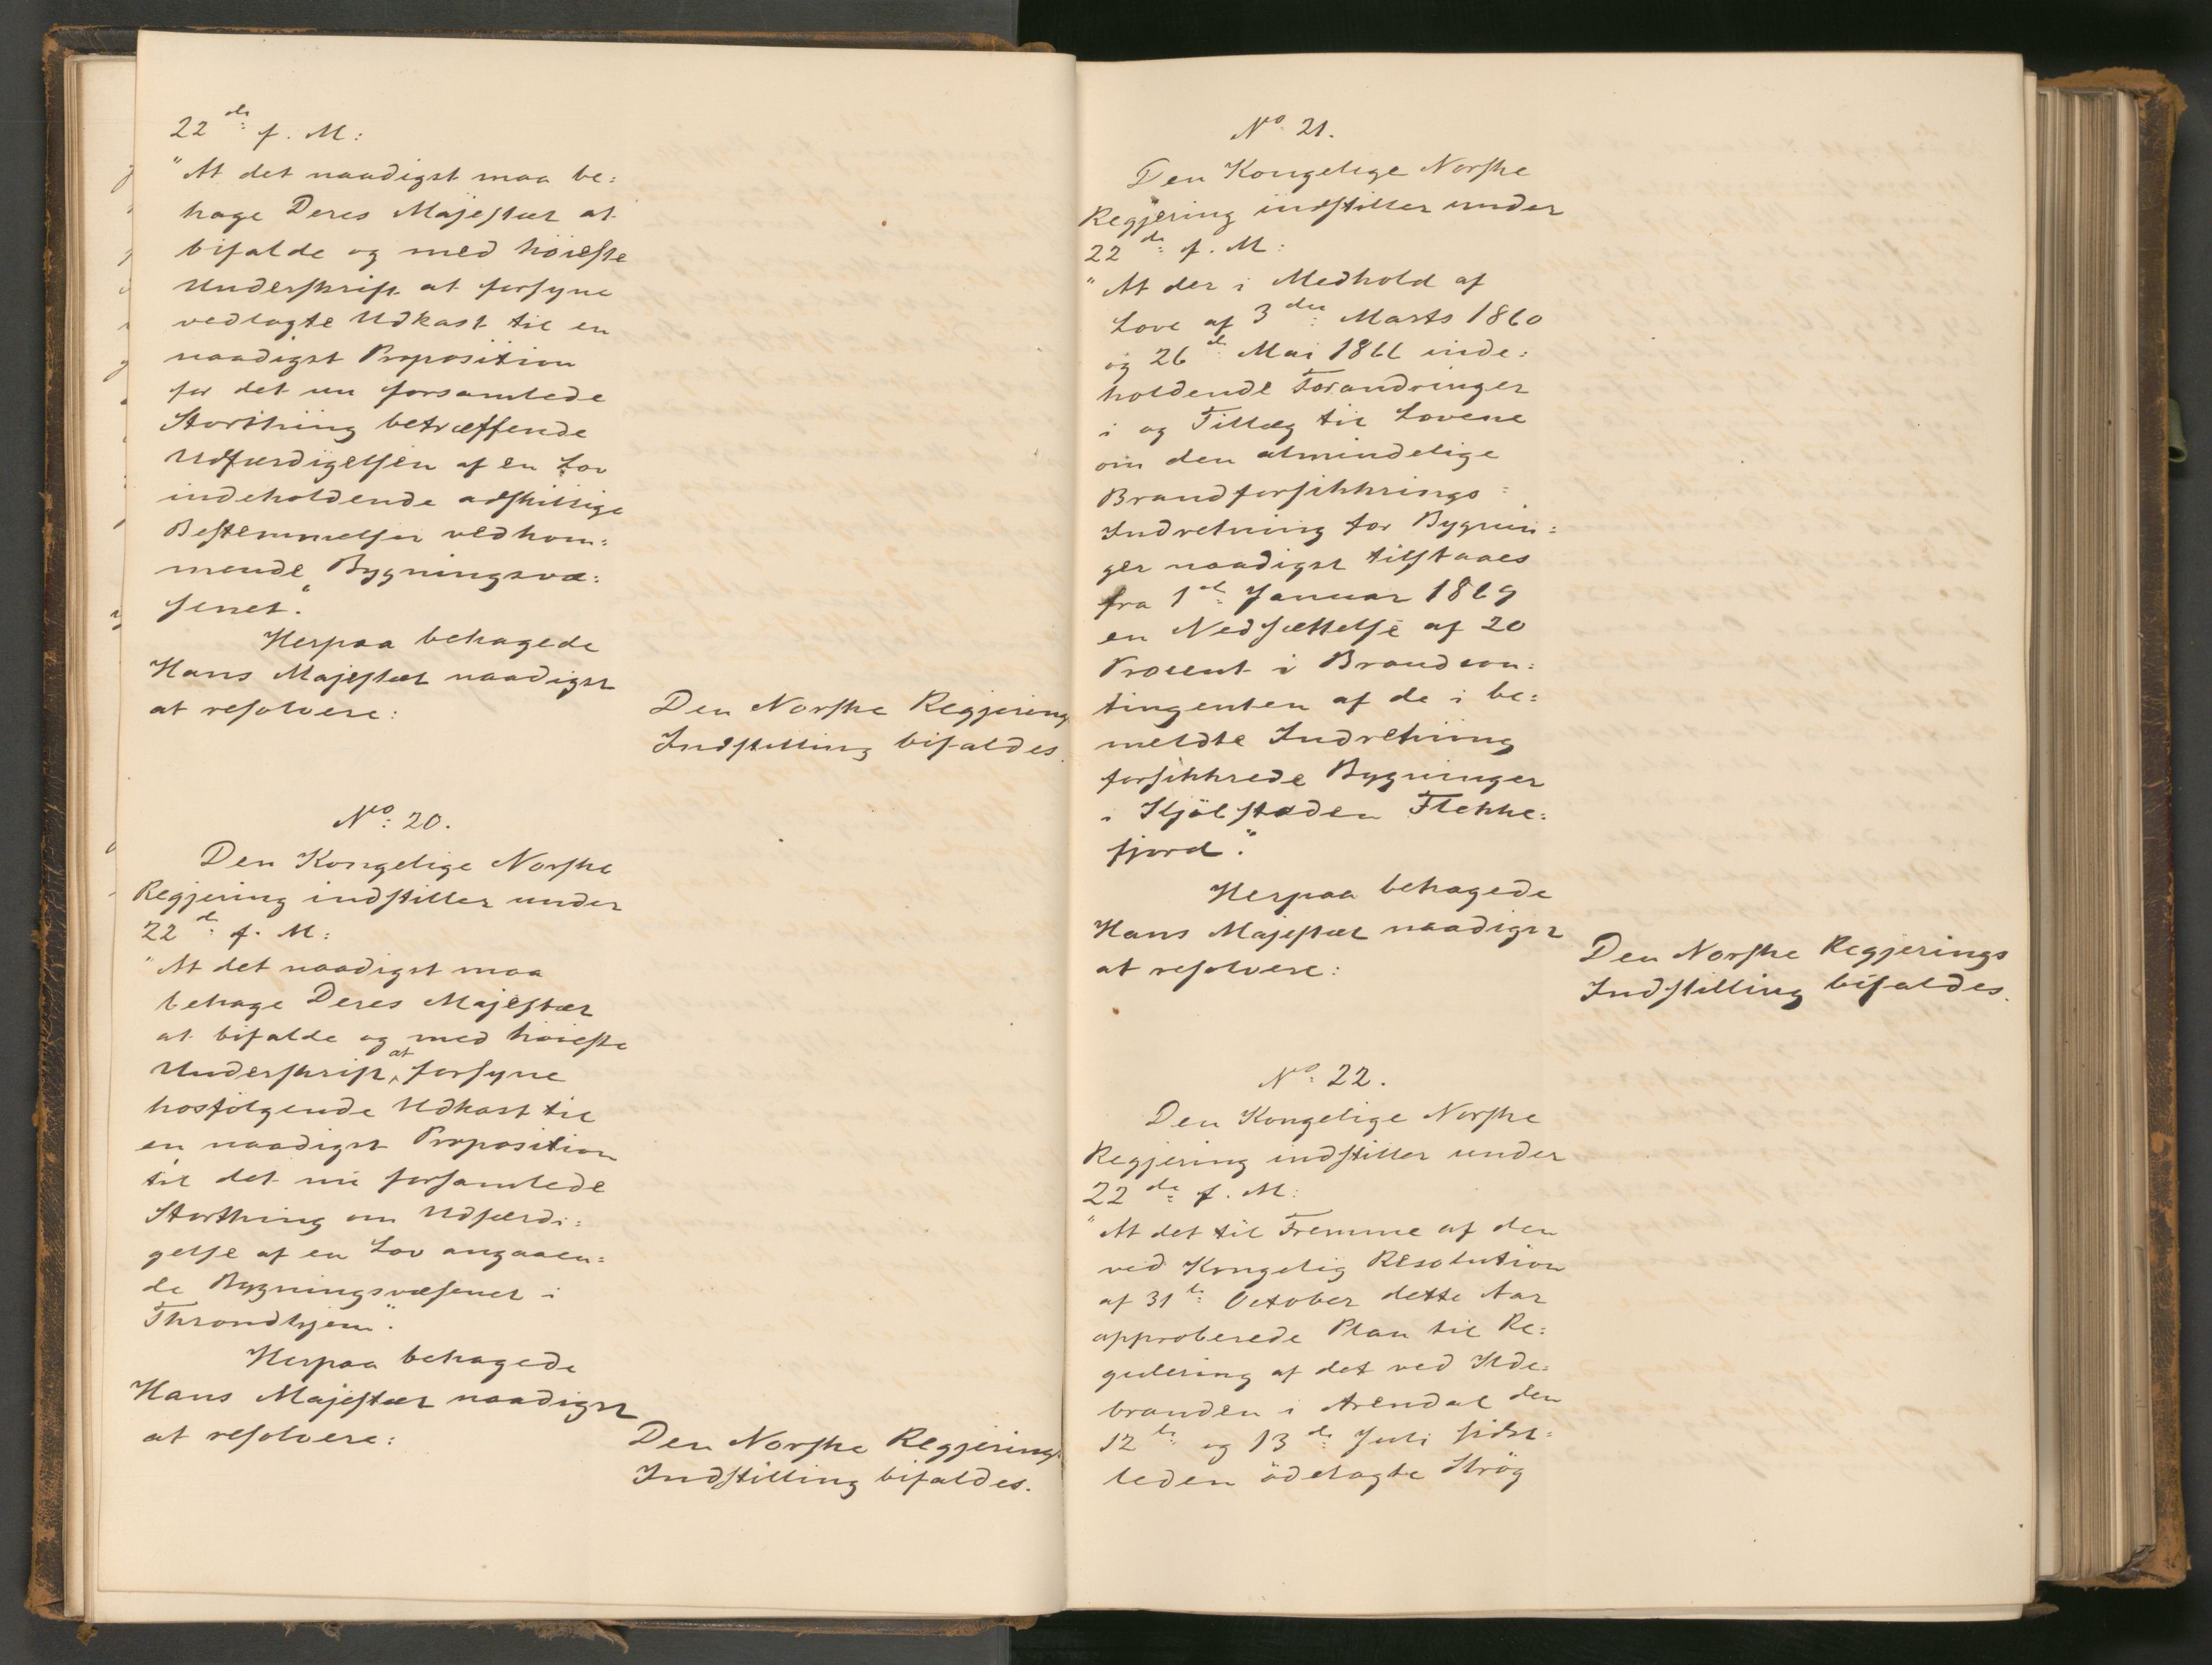 22de f. M:
"At det naadigst maa be=
hage Deres Majestæt at
bifalde og med høieste
Underskrift at forsyne
vedlagte Udkast til en
naadigst Proposition
for det nu forsamlede
Storthing betræffende
Udfærdigelsen af en Lov
indeholdende adskillige
Bestemmelser vedkom=
mende Bygningsvæ=
senet."
Herpaa behagede
Hans Majestæt naadigst
at resolvere:
Den Norske Regjerings
Indstilling bifaldes.
No: 20.
Den Kongelige Norske
Regjering indstiller under
22de f. M:
"At det naadigst maa
behage Deres Majestæt
at bifalde og med høieste
Underskrift at forsyne
hosfölgende Udkast til
en naadigst Proposition
til det nu forsamlede
Storthing om Udfærdi=
gelse af en Lov angaaen=
de Bygningsvæsenet i
Throndhjem".
Herpaa behagede
Hans Majestæt naadigst
at resolvere:
Den Norske Regjerings
Indstilling bifaldes.
No: 21.
Den Kongelige Norske
Regjering indstiller under
22de f. M:
"At der i Medhold af
Love af 3die Marts 1860
og 26de Mai 1866 inde=
holdende Forandringer
i og Tillæg til Lovene
om den almindelige
Brandforsikkrings=
Indretning for Bygnin=
ger naadigst tilstaaes
fra 1ste Januar 1869
en Nedsættelse af 20
Procent i Brandcon=
tingenten af de i be=
meldte Indretning
forsikkrede Bygninger
i Kjöbstaden Flekke=
fjord."
Herpaa behagede
Hans Majestæt naadigst
at resolvere:
Den Norske Regjerings
Indstilling bifaldes.
No: 22.
Den Kongelige Norske
Regjering indstiller under
22de f. M:
"At det til Fremme af den
ved Kongelig Resolution
af 31te October dette Aar
approberede Plan til Re=
gulering af det ved Ilde=
branden i Arendal den
12te og 13de Juli sidst=
leden ödelagte Strög